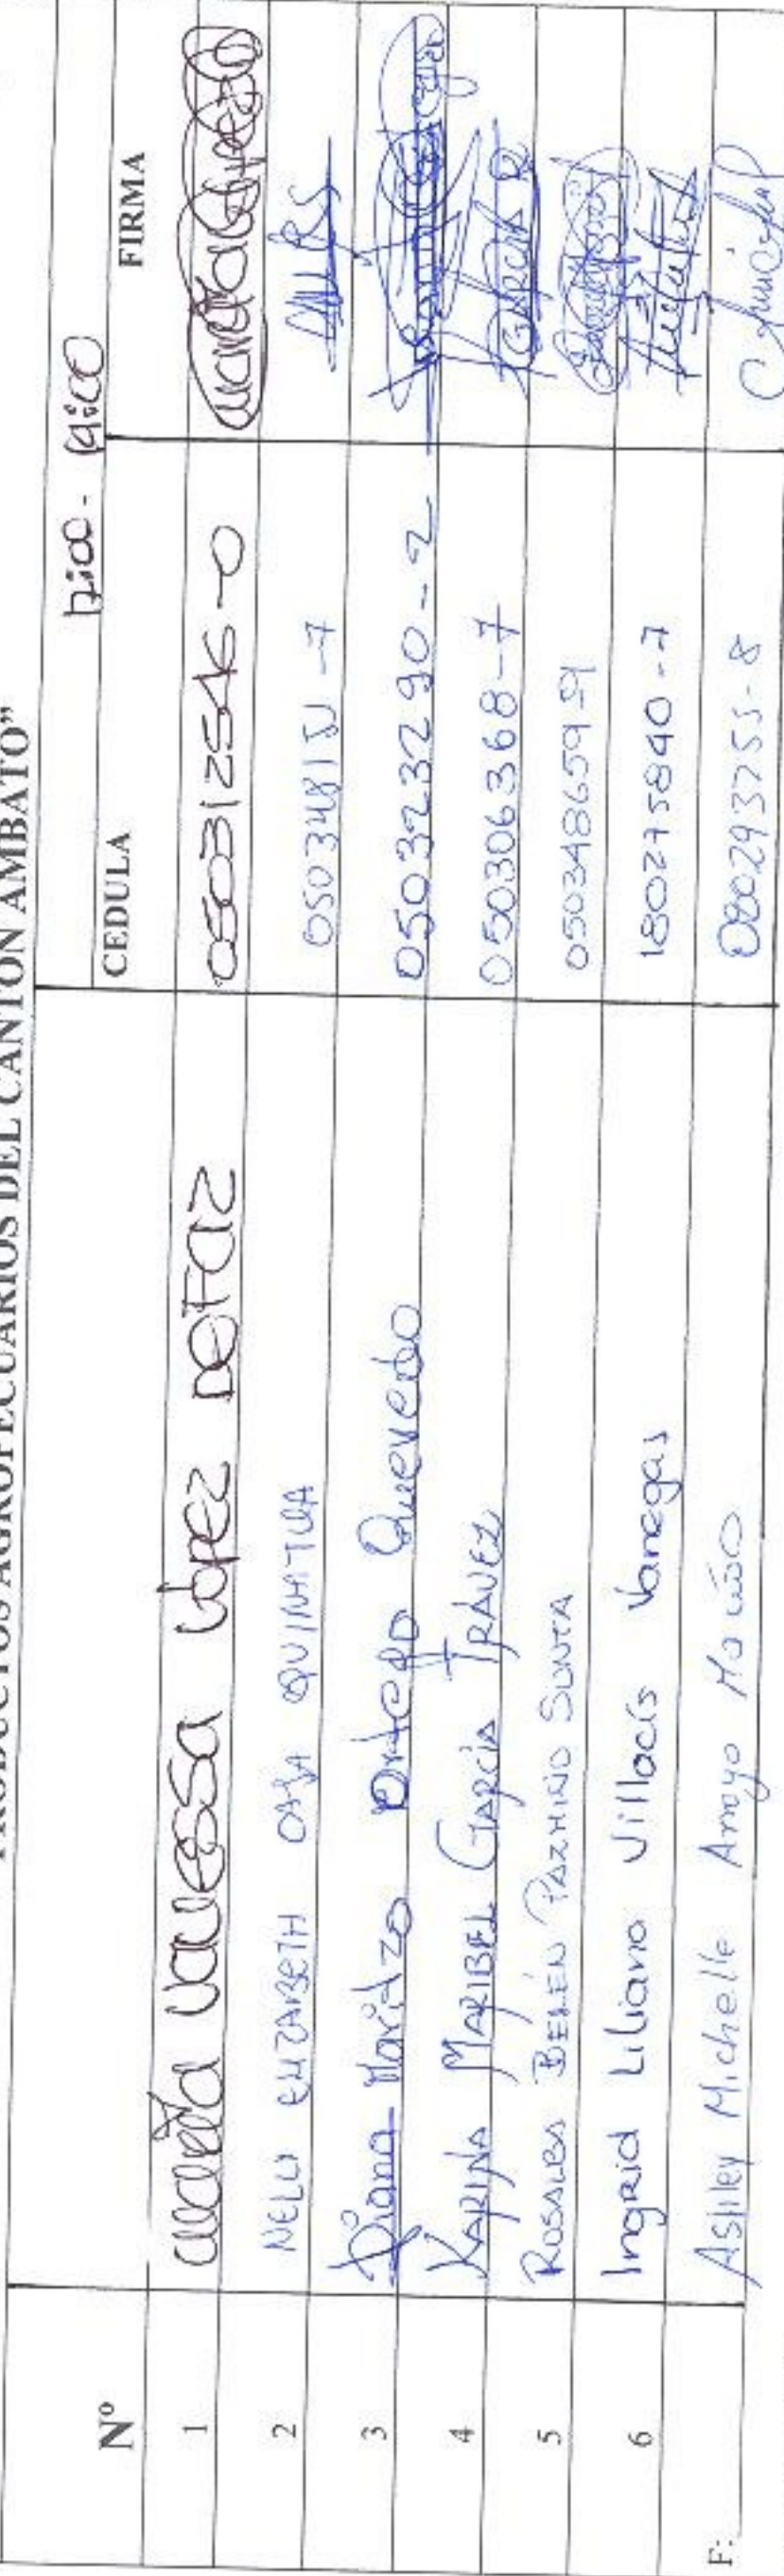 PRODUCTOS AGROPECUARIOS DEL CANTÓN AMBATO”
17:00 - 19:00
Nº CEDULA FIRMA
1 María Vanessa López Defaz 050312546-0
2 NELLI ELIZABETH QUINATOA
3 Diana Maritza Ortega Quevedo 050323290-2
4 KARINA MARIBEL GARCÍA TRÁVEZ 050306368-7
5 ROSALBA BELÉN PAZMIÑO SUNTA 050348659-9
6 Ingrid Liliana Villacís Vanegas 180275840-7
Ashley Michelle Arroyo 080293755-8
F: